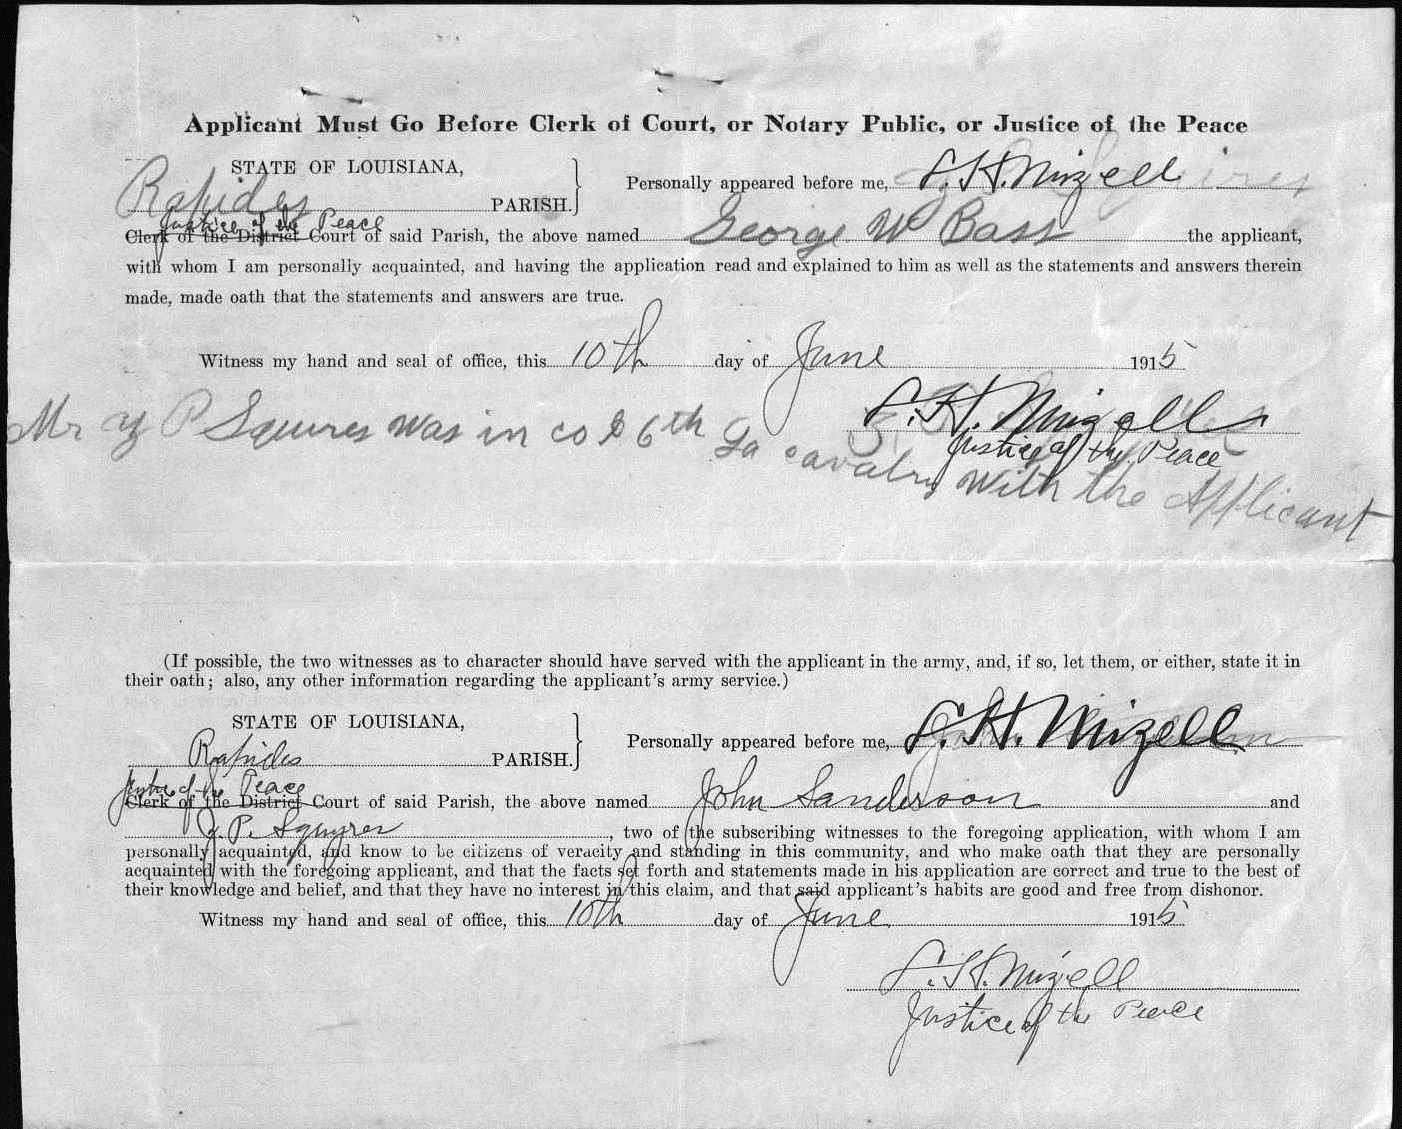 Applicant Must Go Before Clerk of Court, or Notary Public, or Justice of the Peace
STATE OF LOUISIANA,
Rapides PARISH.
Personally appeared before me, S. H. Mizell
Justice of the Peace
Clerk of the District Court of said Parish, the above named George W Bass the applicant,
with whom I am personally acquainted, and having the application read and explained to him as well as the statements and answers therein
made, made oath that the statements and answers are true.
Witness my hand and seal of office, this 10th day of June 1915
S. H. Mizell
Justice of the Peace
Mr P Squires was in co 6th Ga cavalry with the Applicant
(If possible, the two witnesses as to character should have served with the applicant in the army, and, if so, let them, or either, state it in
their oath; also, any other information regarding the applicant's army service.)
STATE OF LOUISIANA,
Rapides PARISH.
Personally appeared before me, S. H. Mizell
Justice of the Peace
Clerk of the District Court of said Parish, the above named John Sanderson and
J. P. Squyres, two of the subscribing witnesses to the foregoing application, with whom I am
personally acquainted, and know to be citizens of veracity and standing in this community, and who make oath that they are personally
acquainted with the foregoing applicant, and that the facts set forth and statements made in his application are correct and true to the best of
their knowledge and belief, and that they have no interest in this claim, and that said applicant's habits are good and free from dishonor.
Witness my hand and seal of office, this 10th day of June 1915
S. H. Mizell
Justice of the Peace